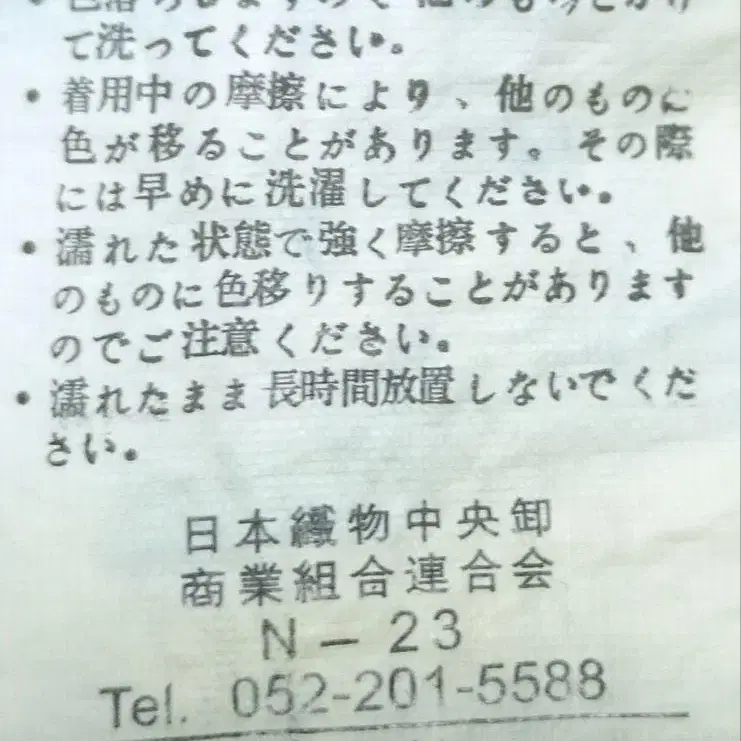 ・色落ちしますので他のものと分け
て洗ってください。
・着用中の摩擦により、他のものに
色が移ることがあります。その際
には早めに洗濯してください。
・濡れた状態で強く摩擦すると、他
のものに色移りすることがあります
のでご注意ください。
・濡れたまま長時間放置しないでくだ
さい。
日本織物中央卸
商業組合連合会
N-23
Tel. 052-201-5588